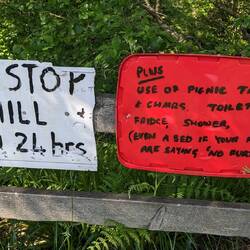 STOP
HILL
24 hrs
PLUS
USE OF PICNIC
& CHAIRS, TOILET
FRIDGE SHOWER,
(EVEN A BED IF YOUR
ARE SAYING 'NO